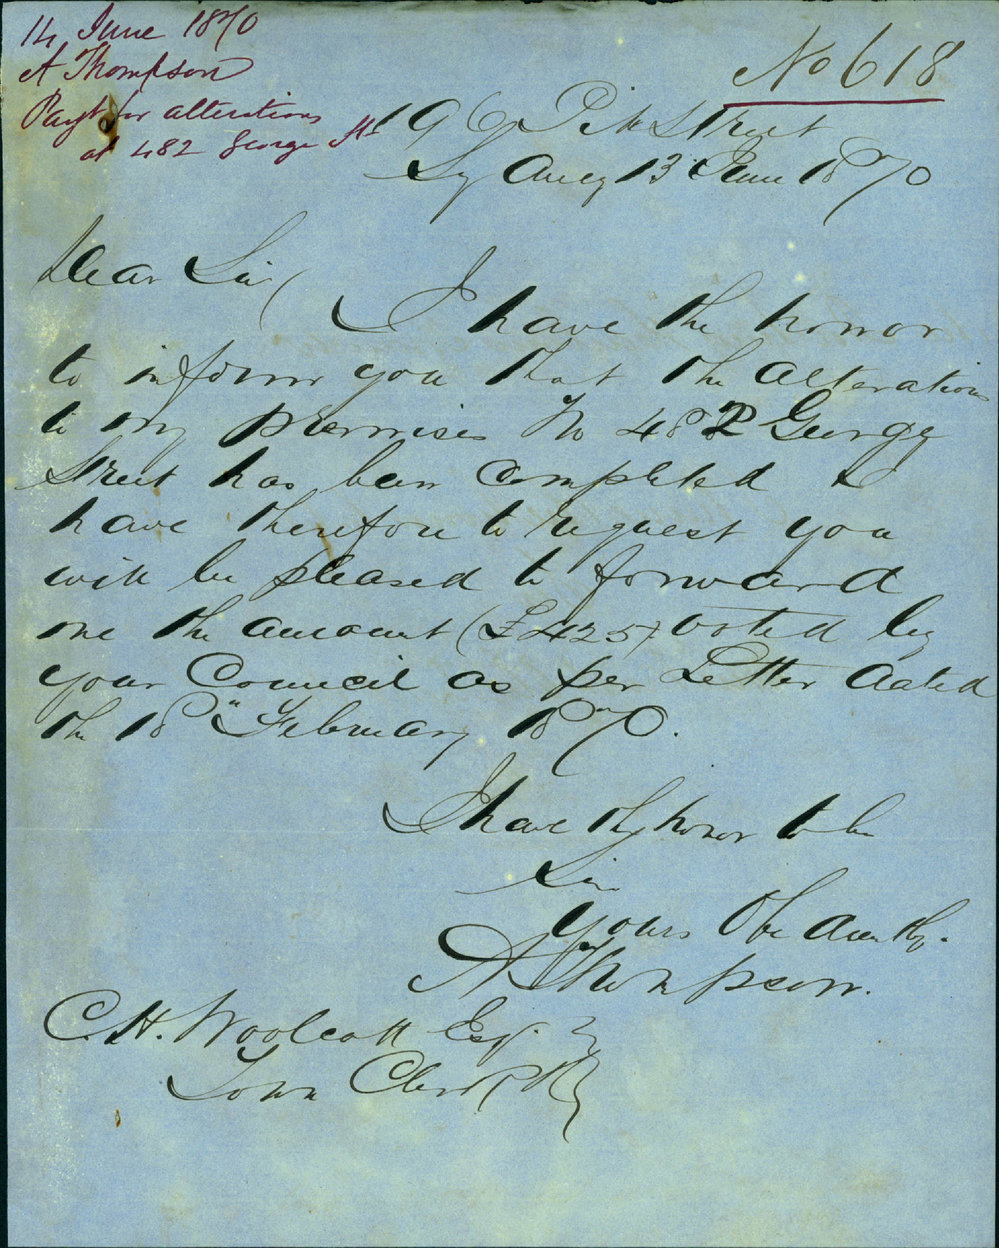 14 June 1870
A Thompson
Payt for alterations
at 482 George St
No 618
196 Pitt Street
Sydney 13 June 1870
Dear Sir
I have the honor
to inform you that the alterations
to my premises No 482 George
Street has been completed I
have therefore to request you
will be pleased to forward
me the amount (£425) voted by
your Council as per Letter dated
the 18th February 1870.
I have the honor to be
Sir
yours Obediently
A Thompson.
C. H. Woolcott Esq.
Town Clerk